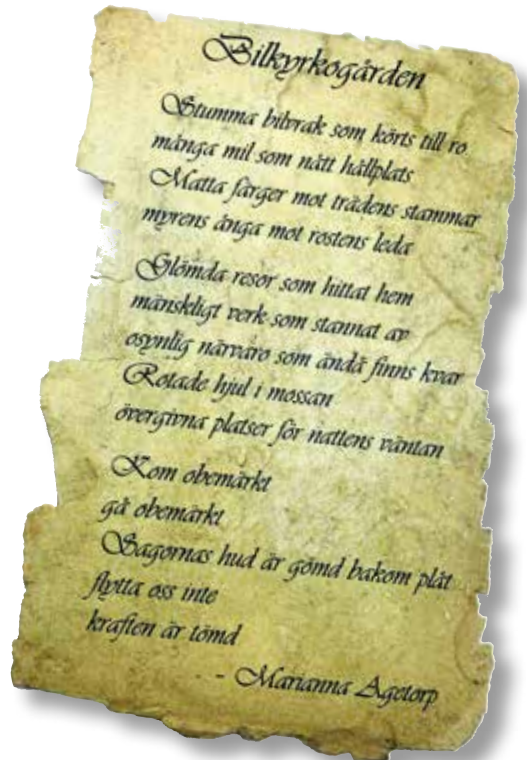 Bilkyrkogården
Stumma bilvrak som körts till ro
många mil som nått hållplats
Matta färger mot trädens stammar
myrens ånga mot rostens leda
Glömda resor som hittat hem
mänskligt verk som stannat av
osynlig närvaro som ändå finns kvar
Rotade hjul i mossan
övergivna platser för nattens väntan
Kom obemärkt
gå obemärkt
Sagornas hud är gömd bakom plåt
flytta oss inte
kraften är tömd
- Marianna Agetorp